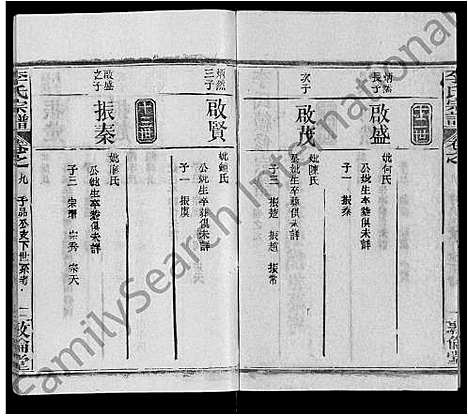 李氏宗譜
卷之
敦倫堂
十二世
炳然
長子
啟盛
妣何氏
公妣生卒塟俱未詳
子一 振秦
次子
啟茂
妣陳氏
公妣生卒塟俱未詳
子三 振超 振常
炳然
三子
啟賢
妣鍾氏
公妣生卒塟俱未詳
子一 振虞
十三世
啟盛
之子
振秦
妣廖氏
公妣生卒塟俱未詳
子三 宗琚 宗秀 宗天
李氏宗譜
卷之九
下世系考
敦倫堂
FamilySearch International